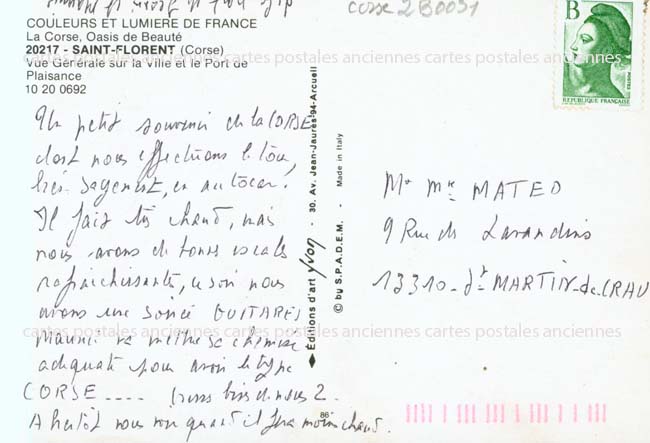 COULEURS ET LUMIERE DE FRANCE
La Corse, Oasis de Beauté
20217 - SAINT-FLORENT (Corse)
Vue Générale sur la Ville et le Port de
Plaisance
10 20 0692
Un petit souvenir de la CORSE
dont nous effectuons le tour,
très sagement, en autocar.
Il fait très chaud, mais
nous avons de bonnes escales
rafraichissantes, ce soir nous
avons une soirée GUITARES
Maurice va mettre sa chemise
adéquate pour avoir le type
CORSE ---- bises de nous 2.
A bientôt nous quand il fera moins chaud.
Editions d'art yvon - 30, Av. Jean-Jaurès-94-Arcueil
© by S.P.A.D.E.M. - Made in Italy
86
corse 2B0031
B
POSTES
REPUBLIQUE FRANÇAISE
Mr Mme MATEO
9 Rue des Lavandins
13310 - St MARTIN-de-CRAU
cartes postales anciennes cartes postales anciennes cartes postales anciennes
cartes postales anciennes cartes postales anciennes cartes postales anciennes